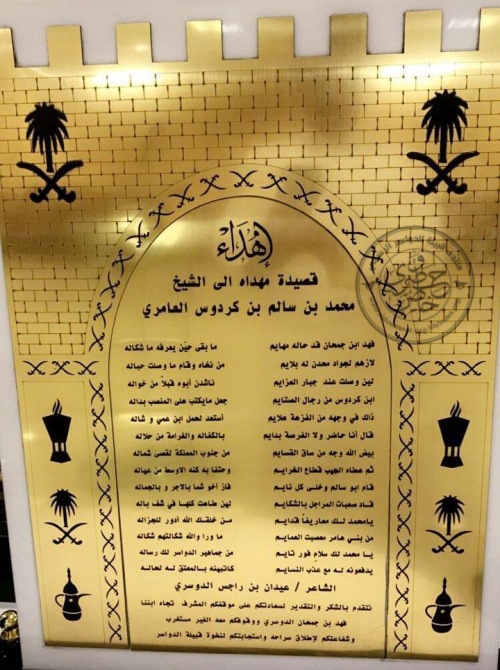 إهداء
قصيدة مهداه الى الشيخ
محمد بن سالم بن كردوس العامري
فهد ابن جمعان قد حاله مهايم ما بقى حيّن يعرفه ما شكاله
لازهم لجواد معدن له بلايم من نخاه وقام ما وصلت حباله
لين وصلت عند جبار العزايم ناشدن أبوه قبلاً من خواله
ابن كردوس من رجال الستايم جعل مايكتب على المنصب بداله
ذاك في وجهه من الفزعة علايم أستعد لحمل ابن عمي و شاله
قال أنا حاضر ولا الفرسة بدايم بالكفاله والغرامة من حلاله
بيض الله وجه من ساق القسايم من جنوب المملكة لقصى شماله
ثم عطاه الجهيب قطاع الخرايم وحتفا به كنه الاوسط من عياله
قام ابو سالم وخلى كل نايم فاز أخو شما بالاجر و بالجماله
قاد صعبات المراجل بالشكايم لين طاعت كلها في شف باله
يامحمد لك معاريفاً قدايم من خلقك الله أدور للجزاله
من بني عامر معصبت العمايم ما ورا والله شكالتهم شكاله
يا محمد لك سلام فور تايم من جماهير الدواسر لك رساله
يدفعونه لـه مع عذب النسايم كاتبينه بالمعتق لـه لحاله
الشاعر / عيدان بن راجس الدوسري
نتقدم بالشكر والتقدير لسعادتكم على موقفكم المشرف تجاه ابننا
فهد بن جمعان الدوسري ووقوفكم معه الغير مستغرب
وشفاعتكم لإطلاق سراحه واستجابتكم لنخوة قبيلة الدواسر